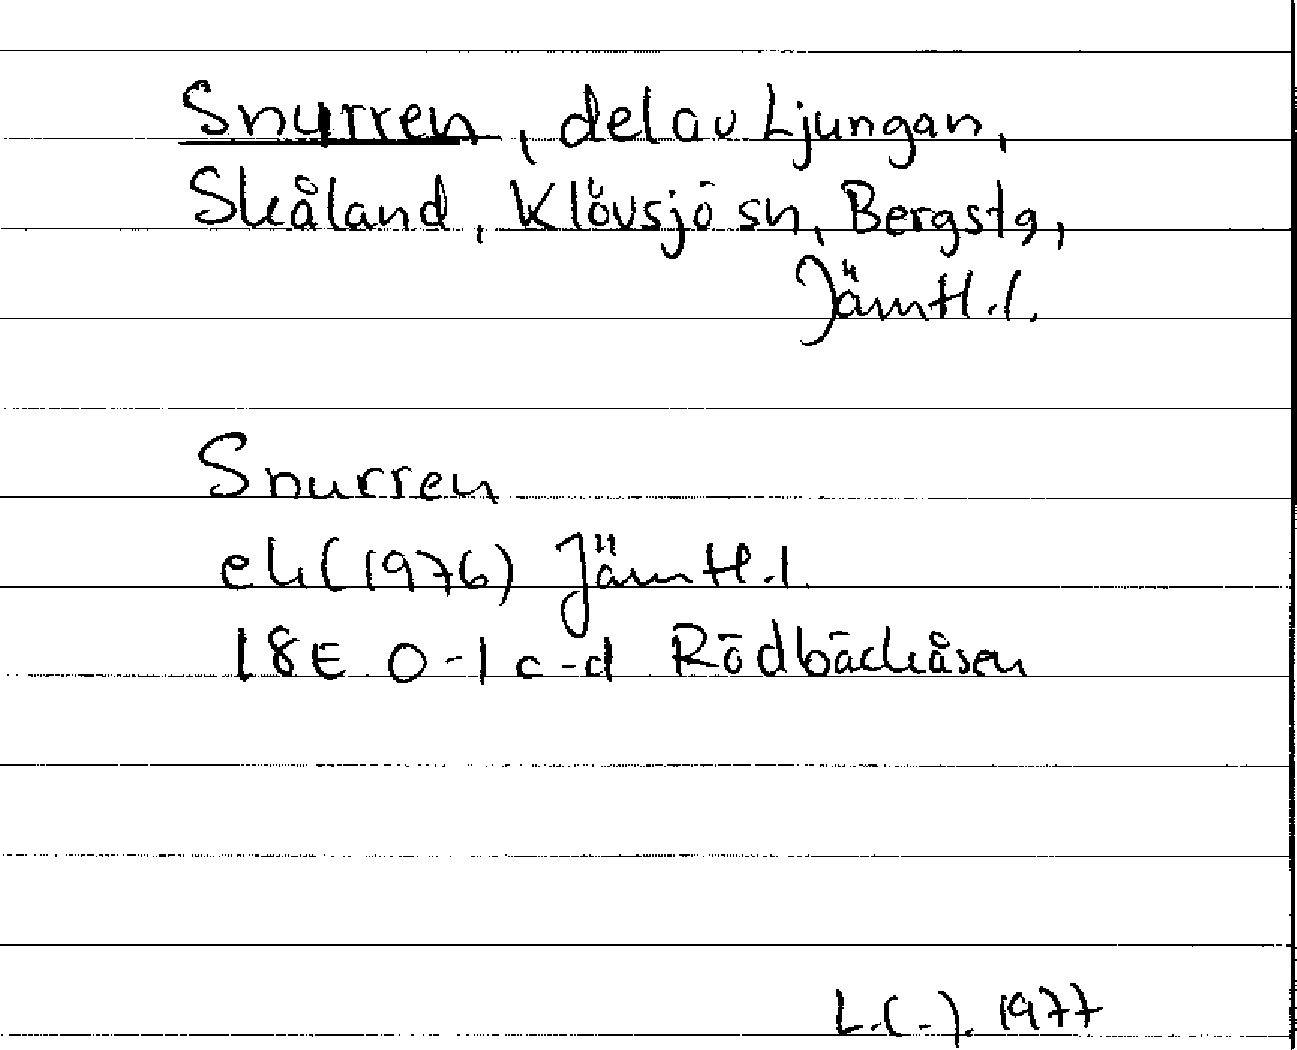 Snurren, del av Ljungan,
Skåland, Klövsjö sn, Bergs tg,
Jämtl.l.
Snurren
ek (1976) Jämtl.l.
18E 0-1 c-d Rödbäckåsen
L.(-). 1977